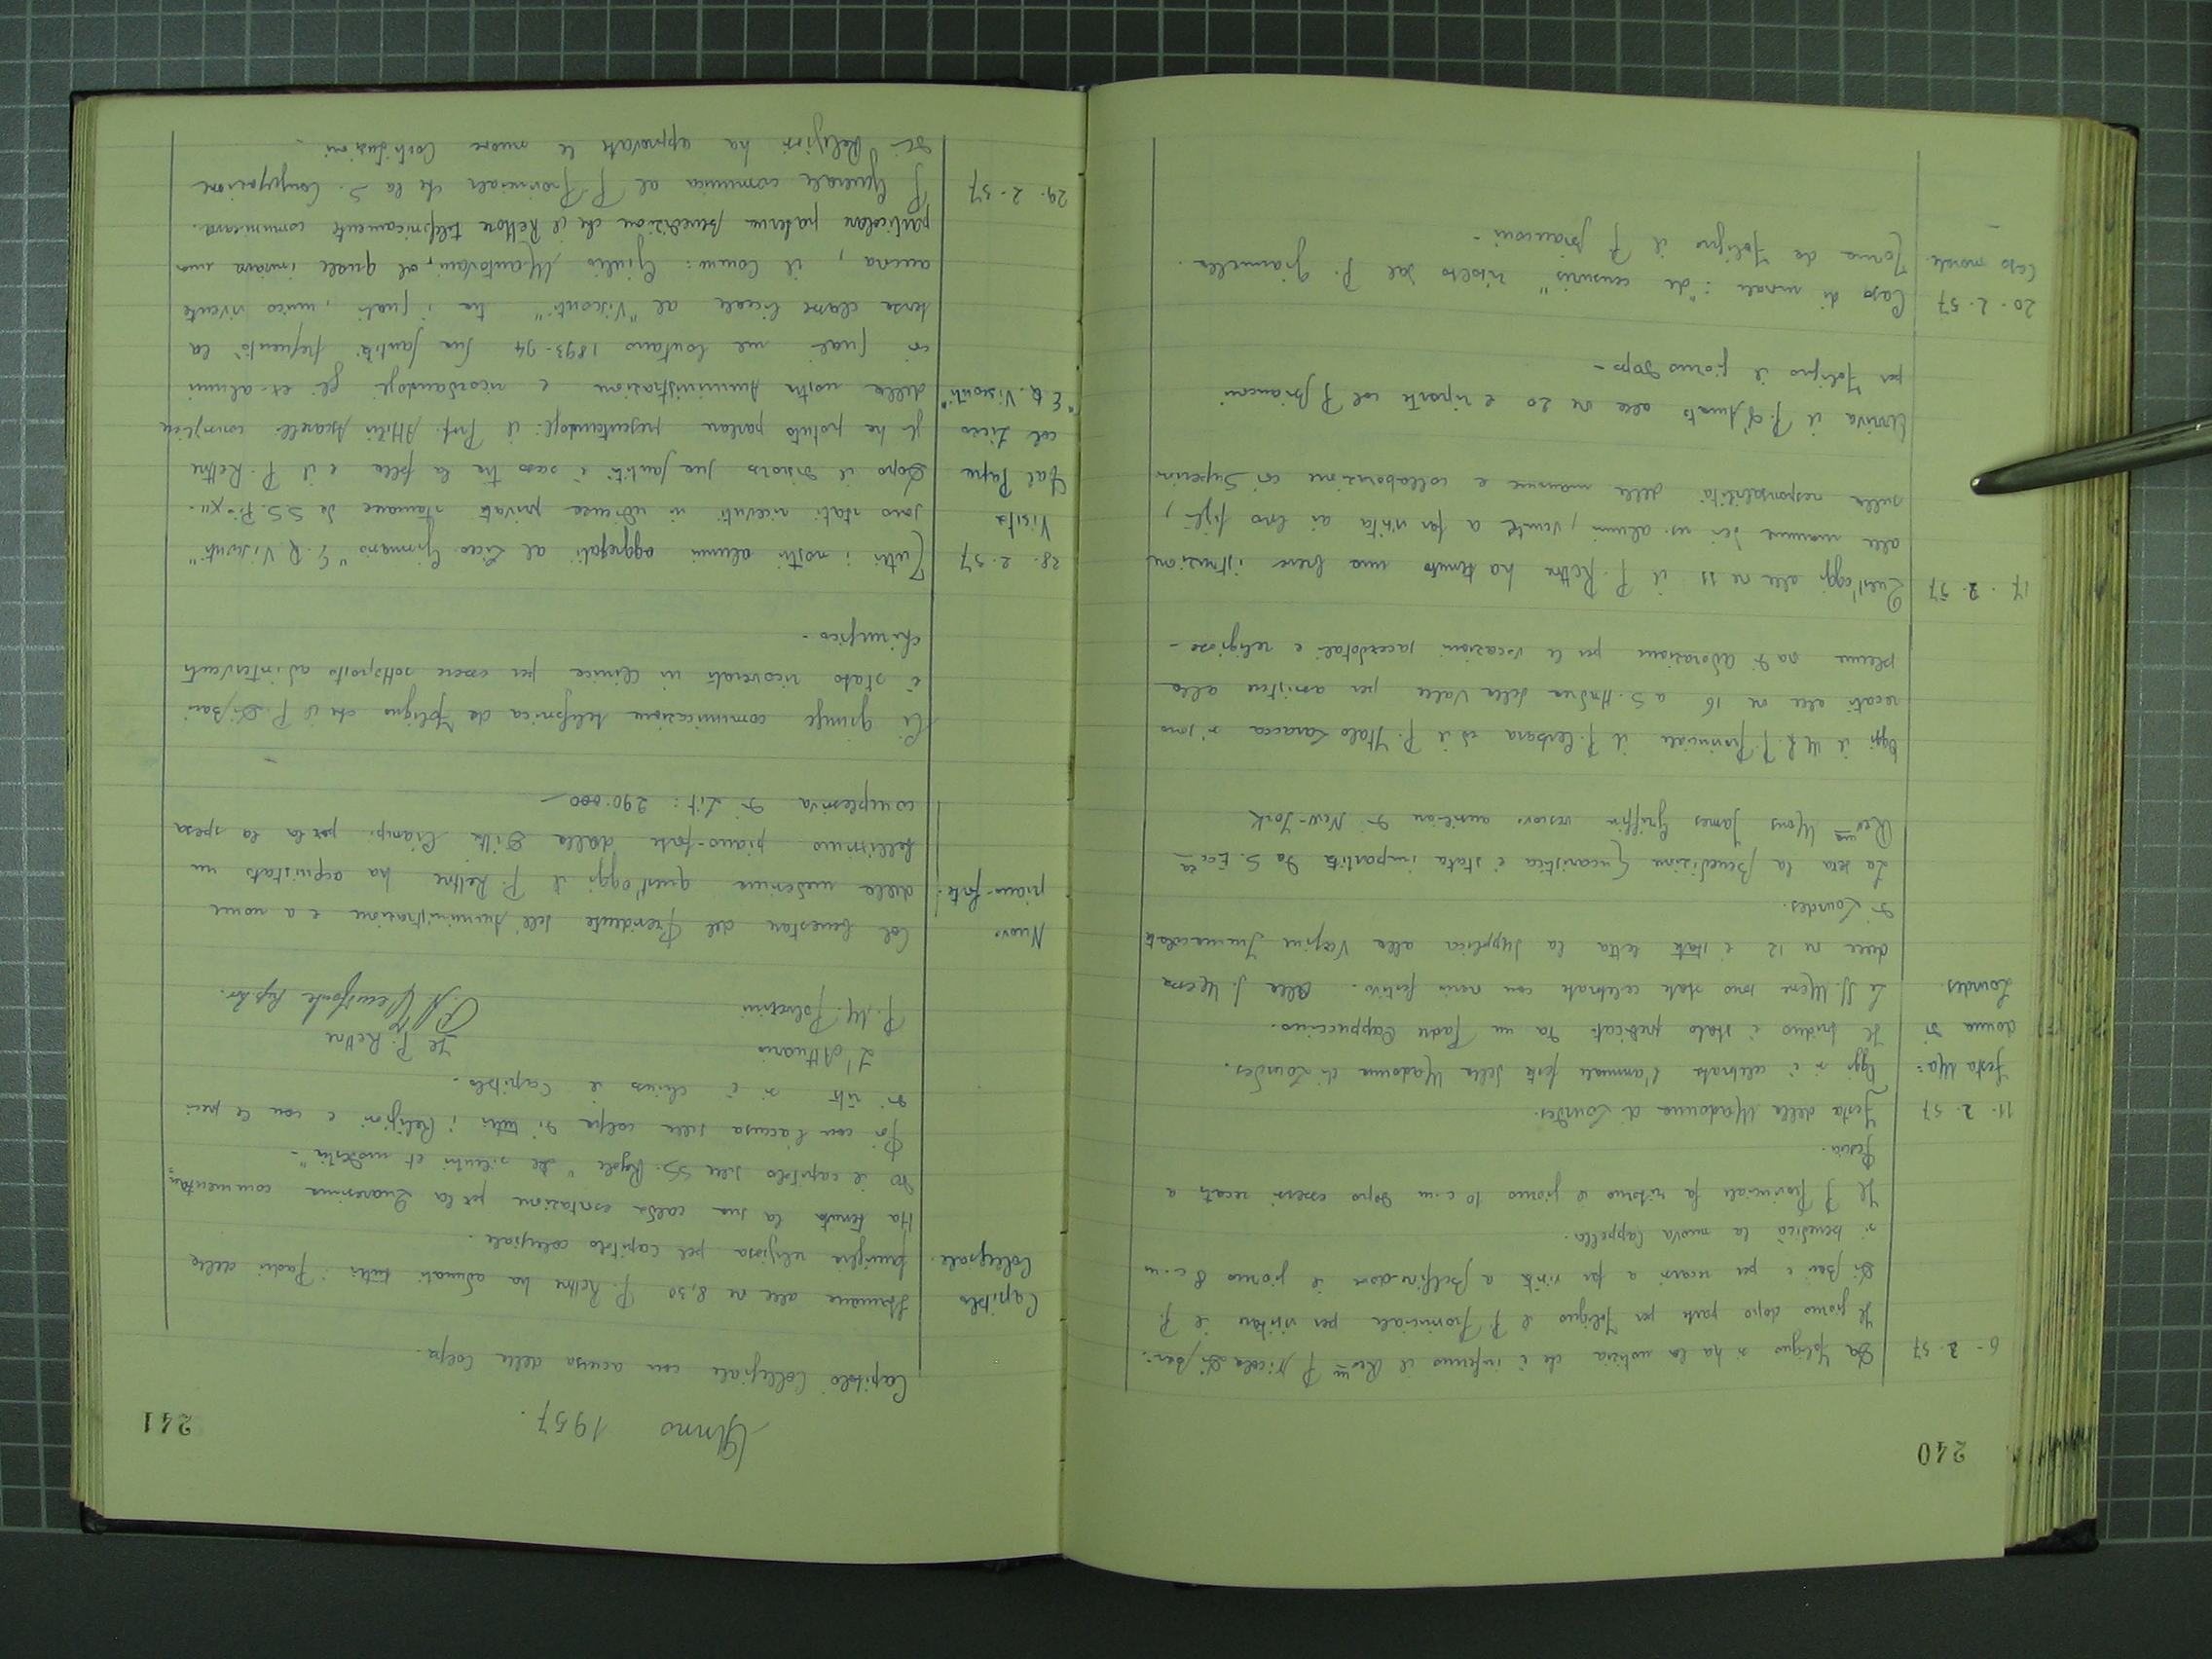 240
6-2-57 Da Foligno si ha la notizia che è infermo il Rev.mo P. Nicola Di Bari:
Il giorno dopo parte per Foligno il P. Provinciale per visitare il P.
Di Bari e per recarsi a far visita a Belfiore dove il giorno 8 c.m.
si benedirà la nuova Cappella.
Il P. Provinciale fa ritorno il giorno 10 c.m. dopo essersi recato a
Pescia.
11-2-57 Festa della Madonna di Lourdes.
Festa Ma= Oggi si è celebrata l'annuale festa della Madonna di Lourdes.
donna di Il triduo è stato predicato da un Padre Cappuccino.
Lourdes. Le SS. Messe sono state celebrate con orario festivo. Alla S. Messa
delle ore 12 è stata letta la Supplica alla Vergine Immacolata
di Lourdes.
La sera la Benedizione Eucaristica è stata impartita da S. Ecc.za
Rev.ma Mons James Griffin vescovo ausiliare di New-York
Oggi il M.R.P. Provinciale il P. Cerbara ed il P. Italo Laracca si sono
recati alle ore 16 a S. Andrea della Valle per assistere alla
solenne ora di Adorazione per le vocazioni sacerdotali e religiose-
17-2-57 Quest'oggi alle ore 11 il P. Rettore ha tenuto una breve istruzione
alle mamme dei ns. alunni, venute a far visita ai loro figli,
sulla responsabilità delle mamme e collaborazione coi Superiori
Arriva il P. D'Amato alle ore 20 e riparte col P. Brianconi
per Foligno il giorno dopo-
20-2-57 Caso di morale: "de censuris" risolto dal P. Giannella.
Caso morale. Torna da Foligno il P. Brianconi-
241
Anno 1957.
Capitolo Collegiale con accusa della Colpa.
Capitolo Stamane alle ore 8,30 P. Rettore ha adunati tutti i Padri della
Collegiale. famiglia religiosa pel capitolo collegiale.
Ha tenuto la sua calda esortazione per la Quaresima commentan=
do il capitolo delle SS. Regole "De silentii et modestia"-
Poi con l'accusa della colpa di tutti i Religiosi e con le preci
di rito si è chiuso il Capitolo.
L'Attuario Il P. Rettore
P. M.
Nuovo Col benestare del Presidente dell'Amministrazione e a nome
piano-forte: della medesima quest'oggi il P. Rettore ha acquistato un
bellissimo piano-forte dalla Ditta Ciampi per la spesa
complessiva di Lit: 290.000-
Ci giunge comunicazione telefonica da Foligno che il P. Di Bari
è stato ricoverato in clinica per essere sottoposto ad intervento
chirurgico-
28-2-57 Tutti i nostri alunni aggregati al Liceo Ginnasio "E.Q. Visconti"
Visita sono stati ricevuti in udienza privata stamane da S.S. Pio XII-
dal Papa Dopo il discorso Sua Santità è sceso tra la folla e il P. Rettore
col Liceo gli ha potuto parlare presentandogli: il Prof. Attilio Scarelli consigliere
"E.Q. Visconti" della nostra Amministrazione e ricordandogli gli ex-alunni
coi quali nel lontano 1893-94 Sua Santità frequentò la
terza classe liceale al "Visconti" tra i quali, unico vivente
ancora, il Comm: Giulio Mantovani, al quale inviava una
particolare paterna Benedizione che il Rettore telefonicamente comunicava.
29-2-57 P. Generale comunica al P. Provinciale che la S. Congregazione
dei Religiosi ha approvate le nuove Costituzioni-